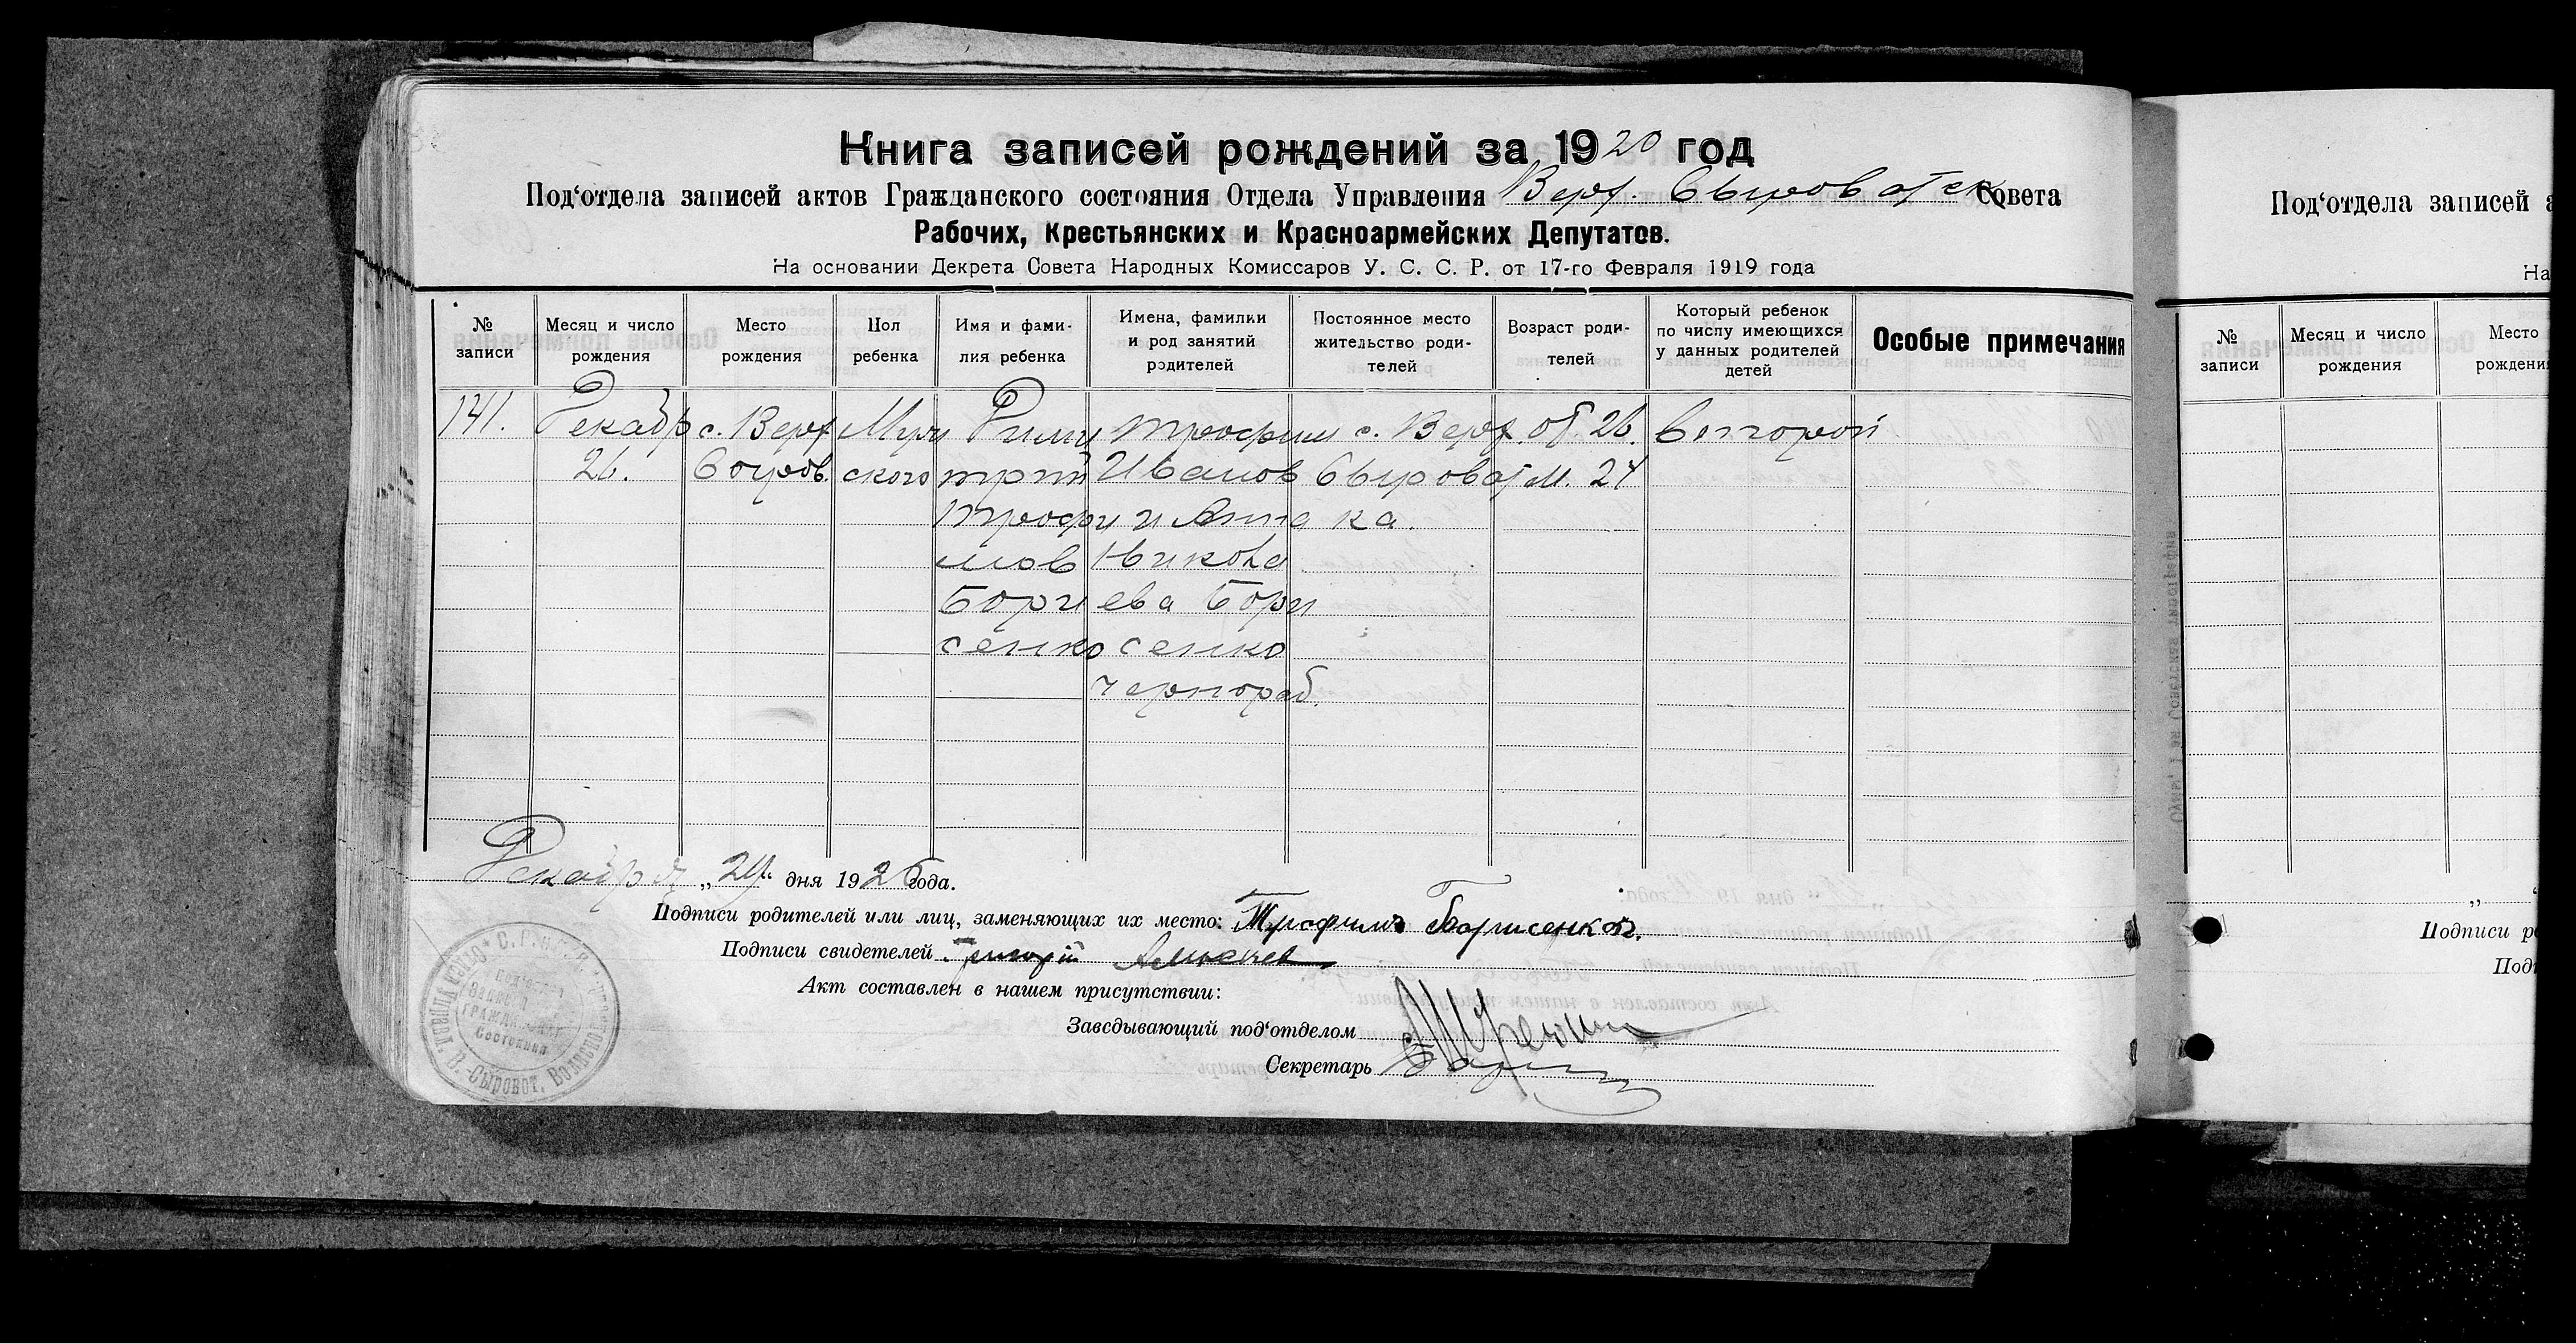 Книга записей рождений за 1920 год
Под‘отдела записей актов Гражданского состояния Отдела Управления Верх. Сыроватск Совета
Рабочих, Крестьянских и Красноармейских Депутатов.
На основании Декрета Совета Народных Комиссаров У. С. С. Р. от 17-го Февраля 1919 года
№ записи
Месяц и число рождения
Место рождения
Пол ребенка
Имя и фами-лия ребенка
Имена, фамилии и род занятий родителей
Постоянное место жительство роди-телей
Возраст роди-телей
Который ребенок по числу имеющихся у данных родителей детей
Особые примечания
141. Декабр с. Верх Муж Дими Трофим с. Верх. от. 26. второй
26. Сыров. ского трий Иванов Сыроват М. 24
Трофи и Анна ка.
мов Никола
Бори ева Бори
сенко сенко
чернораб.
Декабря „29. дня 1920 года.
Подписи родителей или лиц, заменяющих их место: Трофимъ Борисенковъ.
Подписи свидетелей Григорій
Акт составлен в нашем присутствии:
Заведывающий под‘отделом
Секретарь
Под‘отдела записей а
На
№ записи
Месяц и число рождения
Место рождени
„
Подписи р
Подп